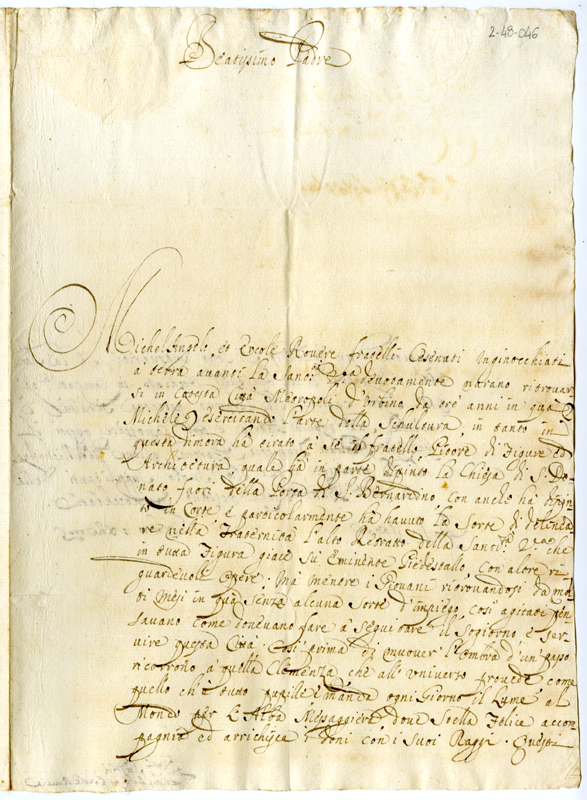 2-48-046
Beatissimo Padre
Michel'Angelo, et Ercole Rovere fratelli Cesenati inginocchiati
a terra avanti la Sanc.tà V.ra devotamente narrano ritrovar
si in cotesta Città Metropoli d'Urbino da tre anni in qua
Michele esercitando l'arte della Scultura, in tanto in
questa dimora ha tirato à se il fratello Pitore di Figure ed
Architectura, quale hà in parte dipinto la Chiesa di S. Do
nato fuori della Porta di S. Bernardino con anche ha
in Corte e particolarmente ha havuto la Sorte di delinea
re nella Fraternita l'alto Retratto della Sanct. V.ra che
in tutta Figura giace su Eminente Piedestallo, con altre ri
guardevole Opere; Mà mentre i Giovani ritrovandosi da mol
ti Mesi in quà senza alcuna Sorte d'impiego, così agitati pen
savano come dovevano fare a seguitare il sogiorno e ser
vire questa Città. Così prima di muover l'ombra d'un passo
ricorrono a quella Clemenza che all'universo provede come
quello ch'è tutto pupille e manda ogni Giorno il Lume al
Mondo per L'Alba Messaggiera, dove Stella Felice accom
pagnia ed arrichisce i doni con i Suoi Raggi. Questo